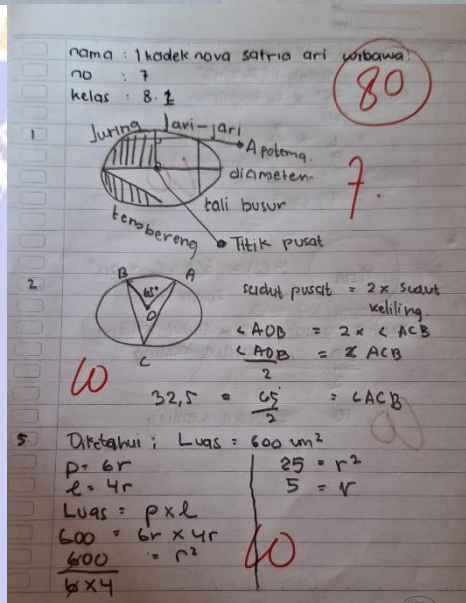 nama : I kadek nova satria ari wibawa
no : 7
kelas : 8.1
80
1
Juring
Jari-jari
Apotema
diameter
tali busur
tembereng
Titik pusat
7.
2
B
A
65°
O
C
sudut pusat = 2 x sudut
keliling
<AOB = 2 x < ACB
<AOB / 2 = 2 ACB
32,5 = 65 / 2 = <ACB
10
5
Diketahui ; Luas = 600 cm²
P = 6r
l = 4r
Luas = p x l
600 = 6r x 4r
600 / 6 x 4 = r²
25 = r²
5 = r
10